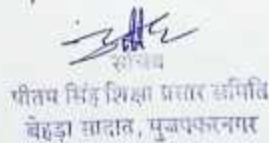 सचिव
पीतम सिंह शिक्षा प्रसार समिति
बेहड़ा सादात, मुजफ्फरनगर